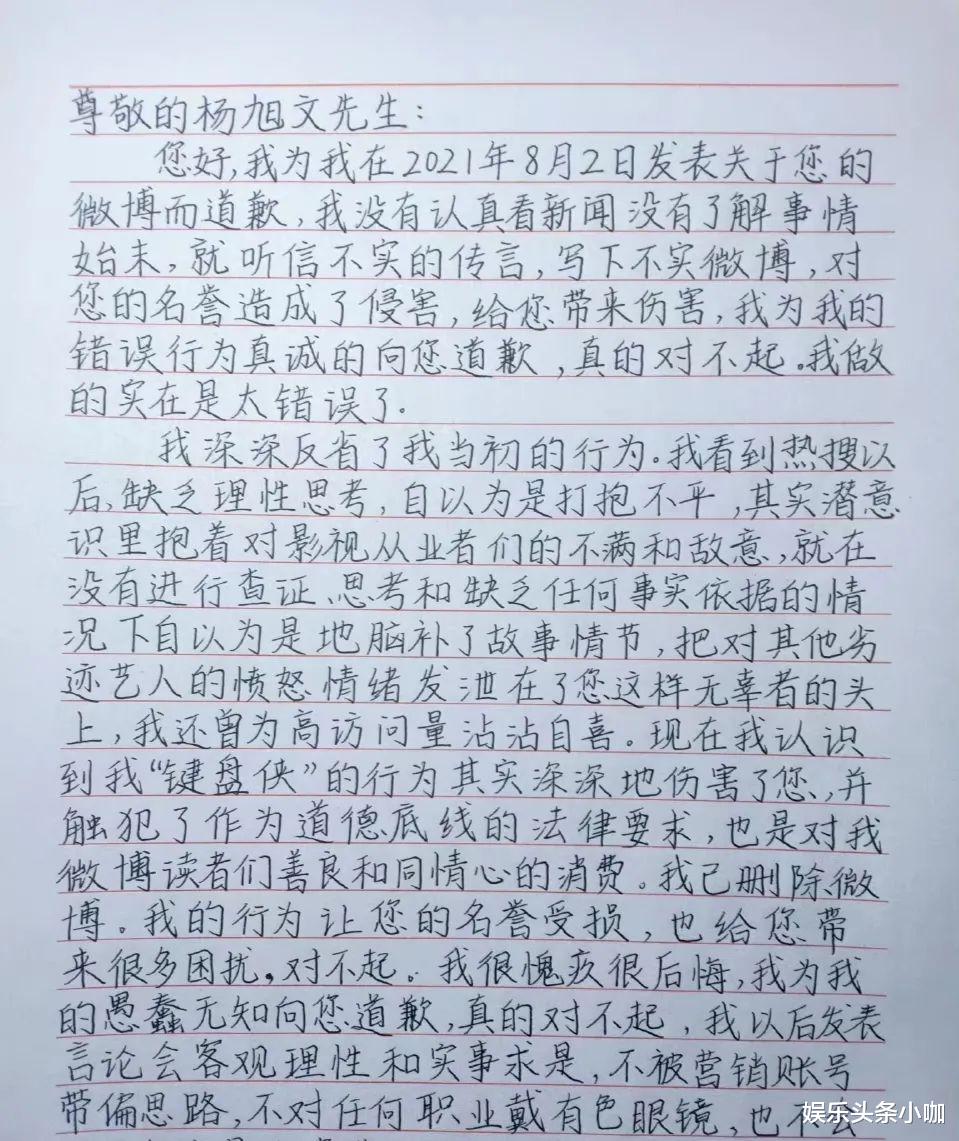 尊敬的杨旭文先生：
您好,我为我在2021年8月2日发表关于您的
微博而道歉，我没有认真看新闻没有了解事情
始末，就听信不实的传言，写下不实微博，对
您的名誉造成了侵害，给您带来伤害，我为我的
错误行为真诚的向您道歉，真的对不起。我做
的实在是太错误了.
我深深反省了我当初的行为。我看到热搜以
后,缺乏理性思考，自以为是打抱不平，其实潜意
识里抱着对影视从业者们的不满和敌意，就在
没有进行查证、思考和缺乏任何事实依据的情
况下自以为是地脑补了故事情节，把对其他劣
迹艺人的愤怒情绪发泄在了您这样无辜者的头
上，我还曾为高访问量沾沾自喜。现在我认识
到我“键盘侠”的行为其实深深地伤害了您，并
触犯了作为道德底线的法律要求，也是对我
微博读者们善良和同情心的消费。我已删除微
博。我的行为让您的名誉受损，也给您带
来很多困扰。对不起。我很愧疚很后悔，我为我
的愚蠢无知向您道歉，真的对不起，我以后发表
言论会客观理性和实事求是，不被营销账号
带偏思路，不对任何职业戴有色眼镜，也不会
娱乐头条小咖